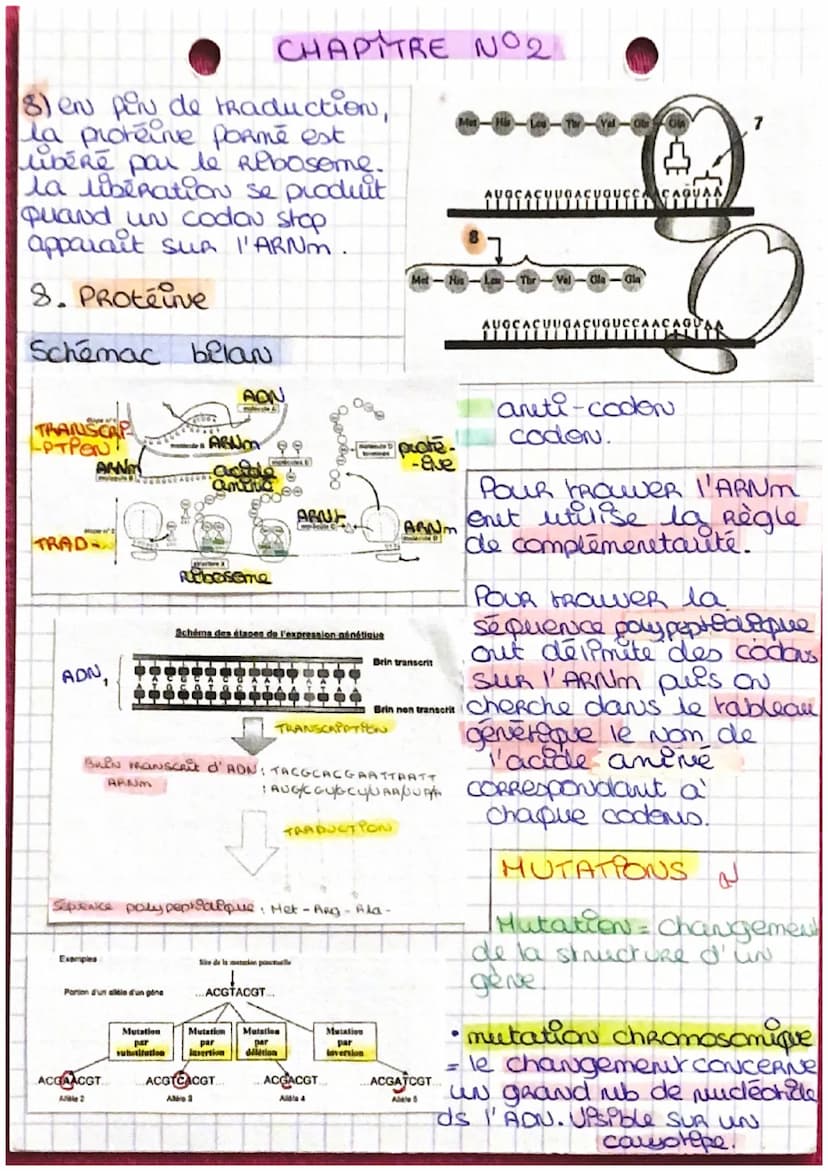 CHAPITRE N°2
8) en fin de traduction,
la protéine formé est
libéré par le Ribosome.
la libération se produit
quand un codon stop
apparait sur l'ARNm.
8. Protéine
Met His Leu Thr Val Gln Gln
7
AUGCACUUGACUGUCCAACAGUAA
8
Met His Leu Thr Val Gln Gln
AUGCACUUGACUGUCCAACAGUAA
Schémac bilan
ADN
TRANSCRIP
-PTION
ARNm
ARNm
acide
aminé
proté-
-ine
TRAD-
ARNt
ARNm
Ribosome
anti-codon
codon.
Pour trouver l'ARNm
ont utilise la Règle
de complémentarité.
Pour trouver la
séquence polypeptidique
ont délimite des codons
sur l'ARNm puis on
cherche dans le tableau
génétique le nom de
l'acide aminé
correspondant a'
chaque codons.
Schéma des étapes de l'expression génétique
ADN,
Brin transcrit
Brin non transcrit
TRANSCRIPTION
Brin transcrit d'ADN : TACGCACGAATTAATT
ARNm
TRADUCTION
Séquence polypeptidique : Met - Arg - Ala -
MUTATIONS
Mutation = changement
de la structure d'un
gène
• mutation chromosomique
= le changement concerne
un grand nb de nucléotide
ds l'ADN. Visible sur un
caryotype.
Exemples
Site de la mutation ponctuelle
Portion d'un allèle d'un gène
...ACGTACGT...
Mutation
par
substitution
Mutation
par
insertion
Mutation
par
délétion
Mutation
par
inversion
ACGAACGT...
ACGTCACGT...
ACGACGT...
ACGATCGT...
Allèle 2
Allèle 3
Allèle 4
Allèle 5